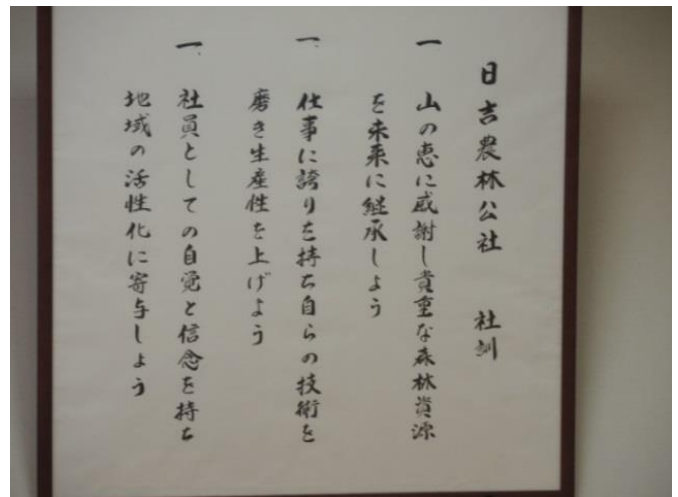 日吉農林公社 社訓
一 山の恵に感謝し貴重な森林資源
を未来に継承しよう
一 仕事に誇りを持ち自らの技術を
磨き生産性を上げよう
一 社員としての自覚と信念を持ち
地域の活性化に寄与しよう